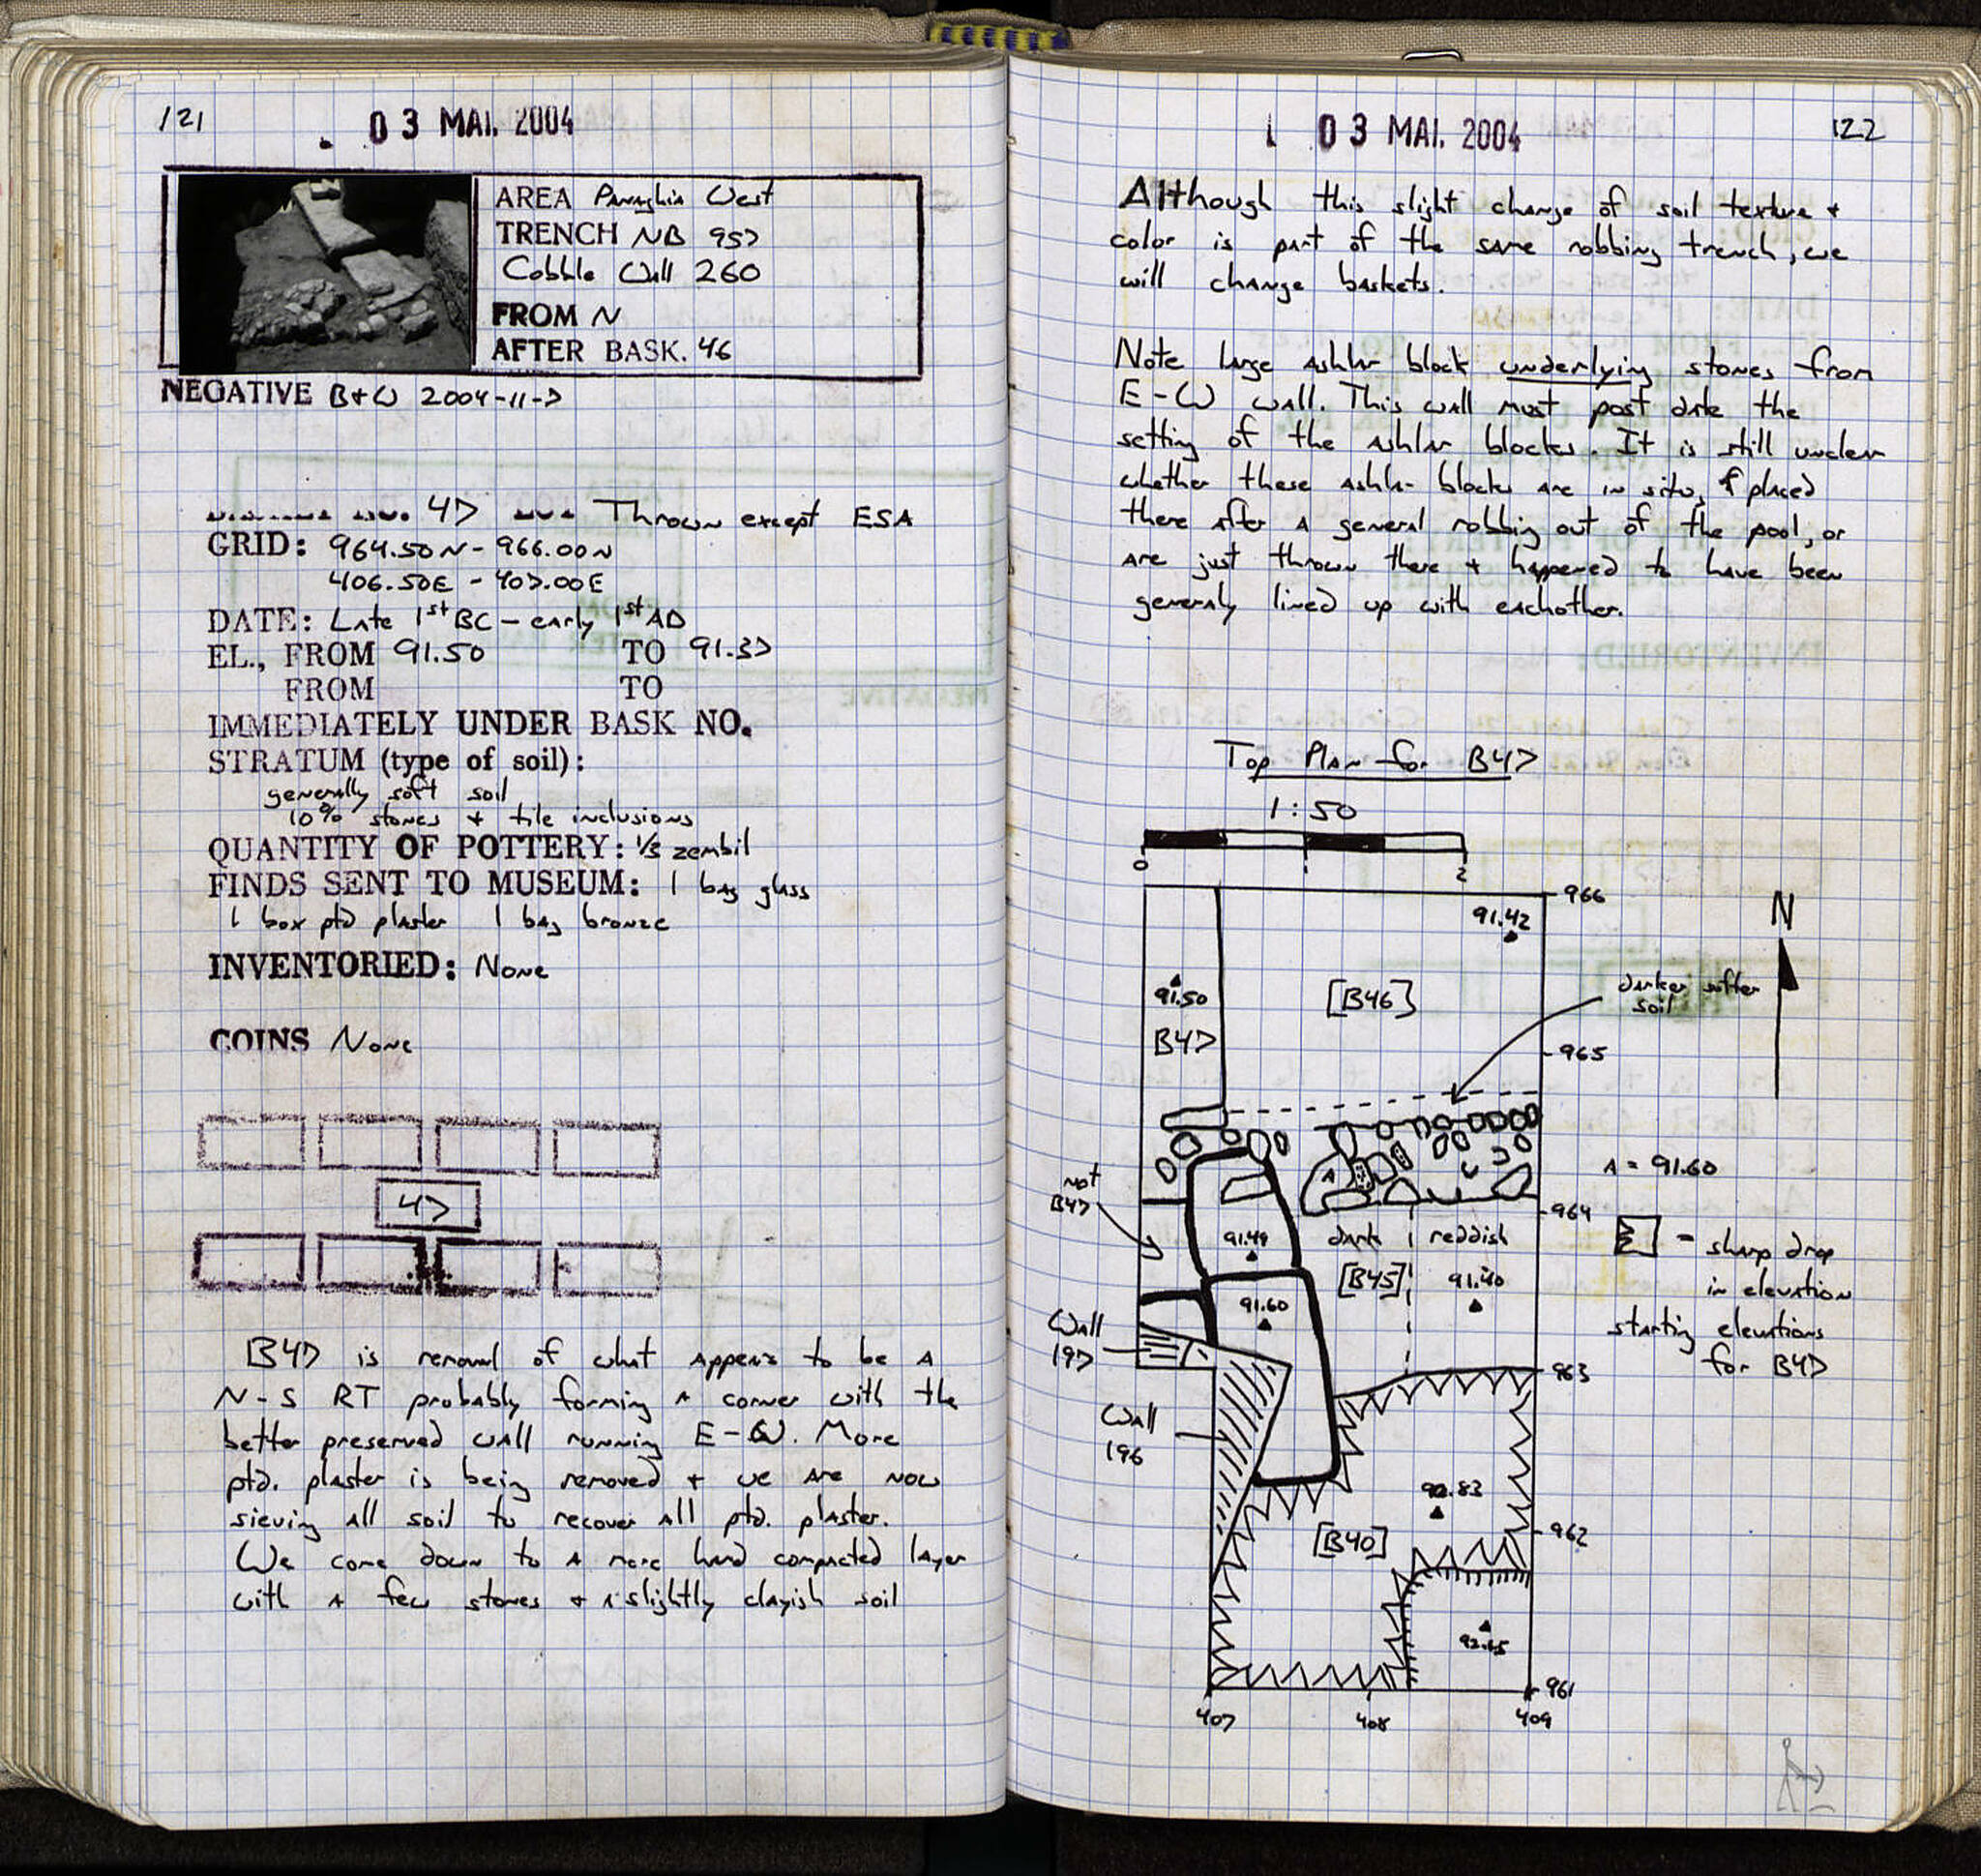 121
03 MAI. 2004
AREA Panaghia West
TRENCH NB 957
Cobble Wall 260
FROM N
AFTER BASK. 46
NEGATIVE B+W 2004-11-7
47 Thrown except ESA
GRID: 964.50N - 966.00N
406.50E - 407.00E
DATE: Late 1st BC - early 1st AD
EL., FROM 91.50 TO 91.37
FROM TO
IMMEDIATELY UNDER BASK NO.
STRATUM (type of soil):
generally soft soil
10% stones + tile inclusions
QUANTITY OF POTTERY: 1/3 zembil
FINDS SENT TO MUSEUM: 1 bag glass
1 box ptd plaster 1 bag bronze
INVENTORIED: None
COINS None
47
B47 is removal of what appears to be a
N-S RT probably forming a corner with the
better preserved wall running E-W. More
ptd. plaster is being removed + we are now
sieving all soil to recover all ptd. plaster.
We come down to a more hard compacted layer
with a few stones + a slightly clayish soil
03 MAI. 2004
122
Although this slight change of soil texture +
color is part of the same robbing trench, we
will change baskets.
Note large ashlar block underlying stones from
E-W wall. This wall must post date the
setting of the ashlar blocks. It is still unclear
whether these ashlar blocks are in situ, placed
there after a general robbing out of the pool, or
are just thrown there + happened to have been
generaly lined up with eachother.
Top Plan for B47
1:50
0 1 2
966
91.42
N
91.50
[B46]
darker softer
soil
B47
965
not
B47
A
A = 91.60
964
91.49
dark reddish
[B45] 91.40
- sharp drop
in elevation
91.60
starting elevations
for B47
Wall
197
963
Wall
196
[B40]
962
961
407 408 409